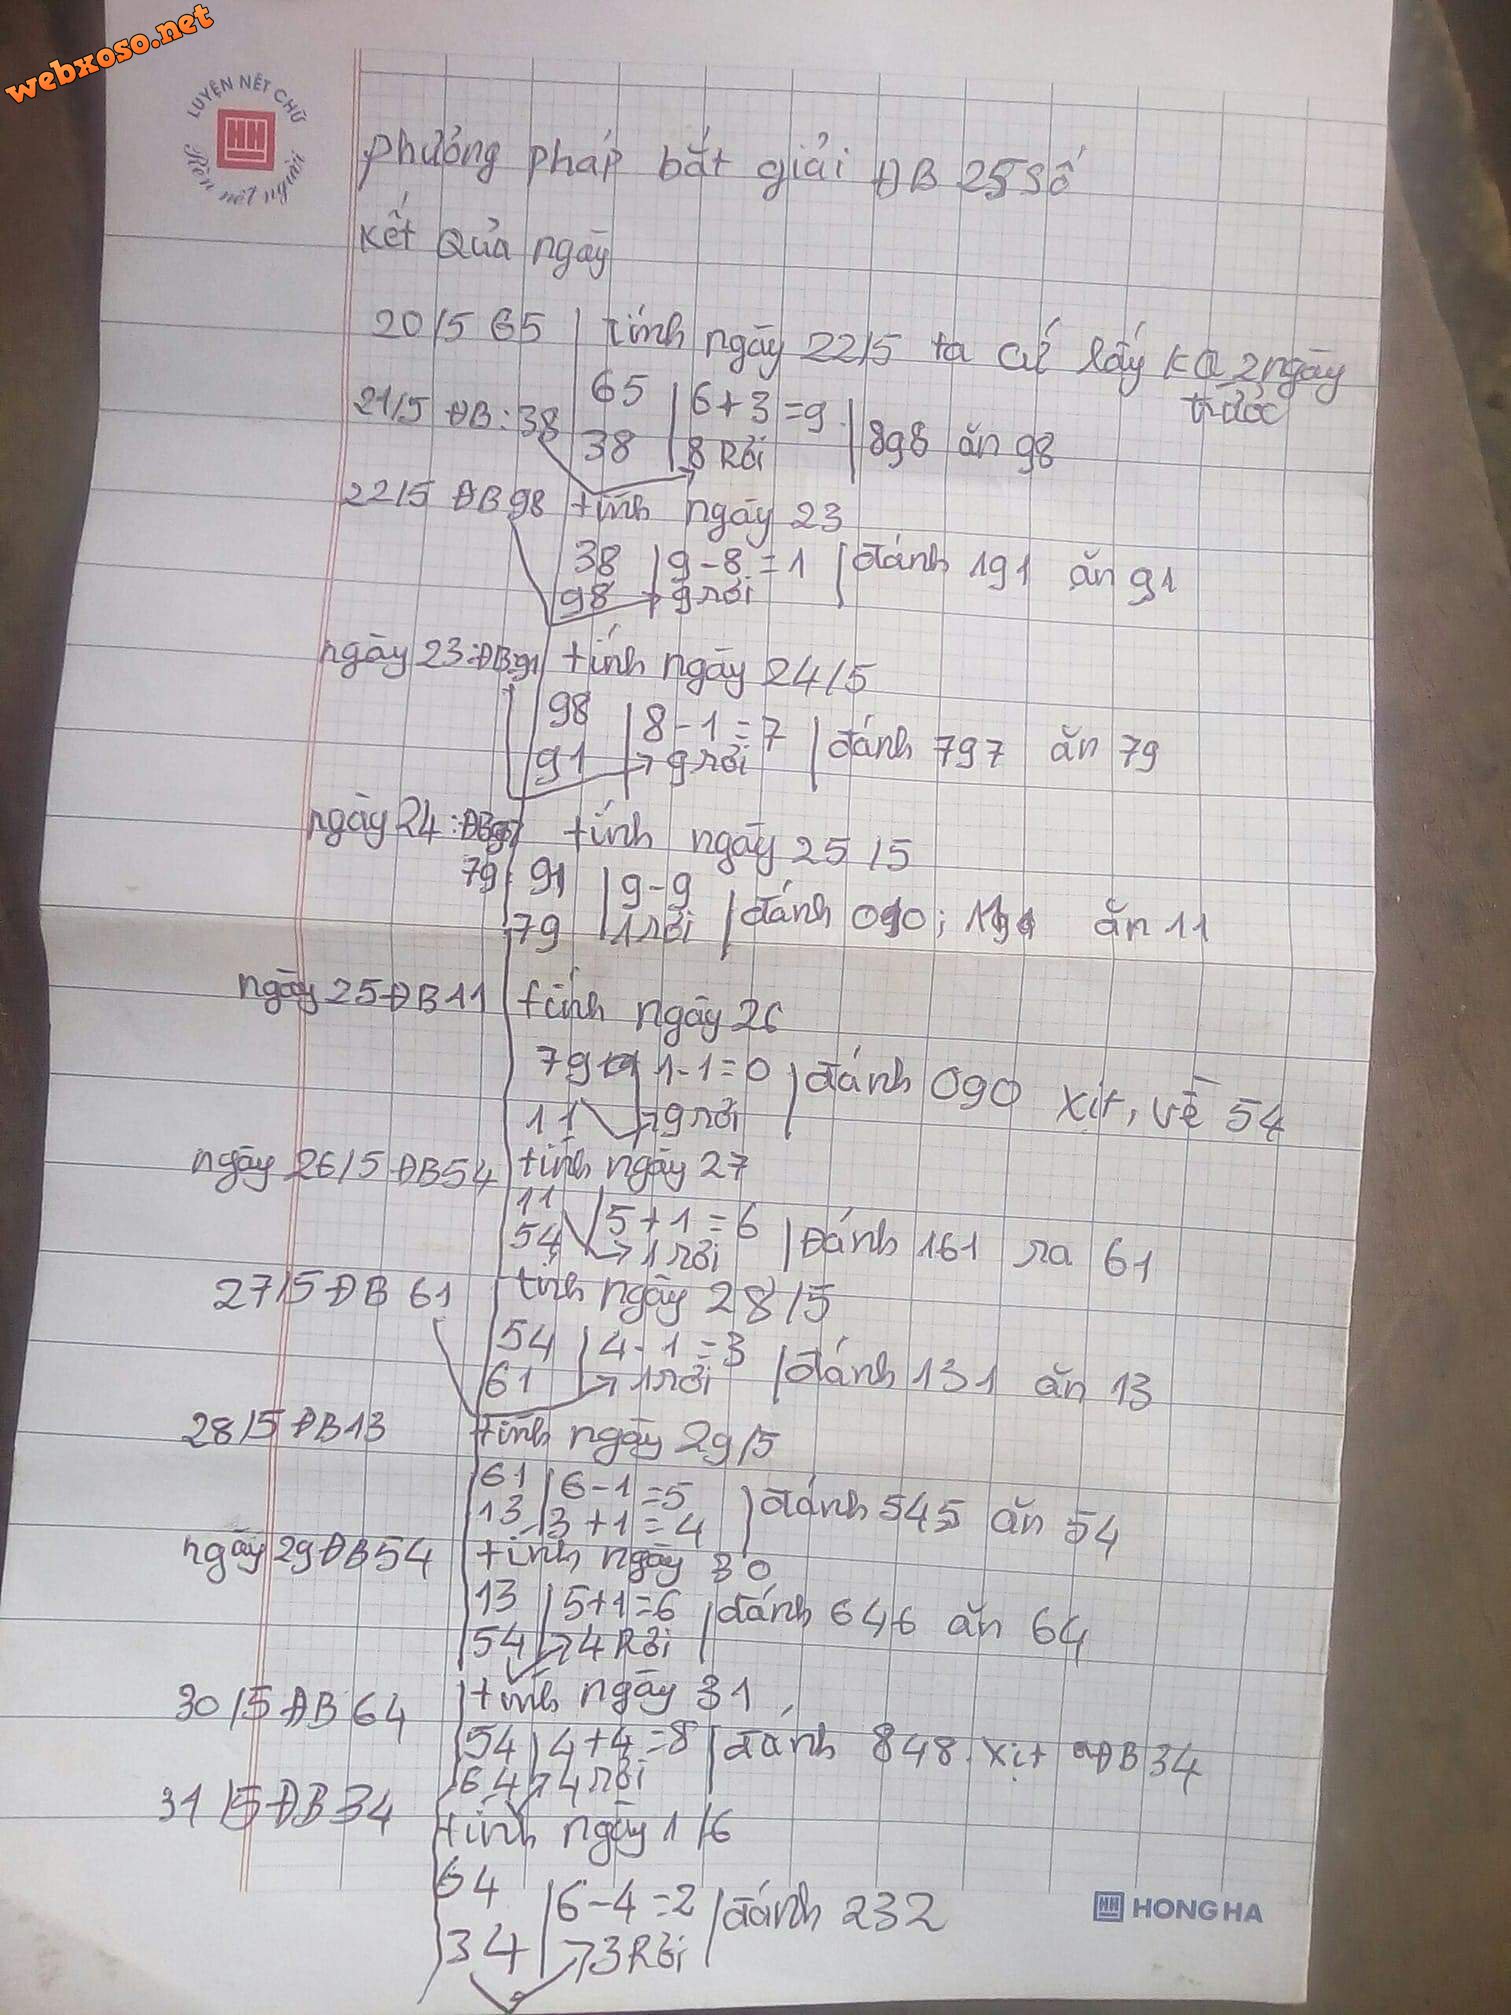 webxoso.net
LUYỆN NÉT CHỮ
HH
Rèn nết người
phương pháp bắt giải ĐB 25 số
kết quả ngày
20/5 65 tính ngày 22/5 ta cứ lấy KQ 2 ngày
trước
65 6+3=9
21/5 ĐB:38
38 8 Rồi 898 ăn 98
22/5 ĐB 98 tính ngày 23
38 9-8=1 đánh 191 ăn 91
98 9 rồi
ngày 23:ĐB:91 tính ngày 24/5
98 8-1=7 đánh 797 ăn 79
91 9 rồi
ngày 24:ĐB tính ngày 25/5
79 91 9-9
79 1 rồi đánh 090; 191 ăn 11
ngày 25 ĐB 11 tính ngày 26
79 1-1=0 đánh 090 xịt, về 54
11 9 rồi
ngày 26/5 ĐB 54 tính ngày 27
11 5+1=6
54 1 rồi Đánh 161 ra 61
27/5 ĐB 61 tính ngày 28/5
54 4-1=3
61 1 rồi đánh 131 ăn 13
28/5 ĐB 13 tính ngày 29/5
61 6-1=5 đánh 545 ăn 54
13 3+1=4
ngày 29 ĐB 54 tính ngày 30
13 5+1=6 đánh 646 ăn 64
54 4 Rồi
30/5 ĐB 64 tính ngày 31
54 4+4=8 đánh 848. xịt ĐB 34
64 4 rồi
31/5 ĐB 34 tính ngày 1/6
64 6-4=2 đánh 232
34 3 Rồi
HH HONG HA